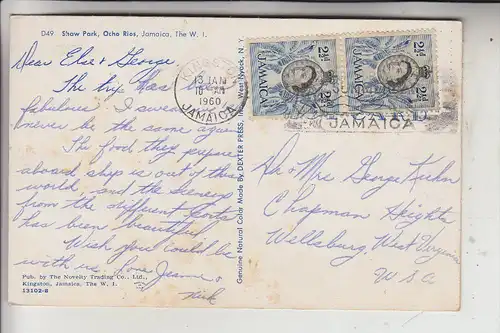 D49 Shaw Park, Ocho Rios, Jamaica, The W. I.
Dear Elsie & George.
The trip has been
fabulous. I swear I'll
never be the same again.
The food they prepare
aboard ship is out of this
world, and the scenery
from the different ports
has been beautiful.
Wish you could be
with us. Love Jeanne &
Nick
Pub. by The Novelty Trading Co., Ltd.,
Kingston, Jamaica, The W. I.
13102-B
Genuine Natural Color Made By DEXTER PRESS, West Nyack, N. Y.
KINGSTON
13 JAN
1960
JAMAICA
2½d 2½d
JAMAICA JAMAICA
2½d 2½d
JAMAICA
Dr & Mrs George Kuhn
Chapman Heights
Wellsburg, West Virginia
USA